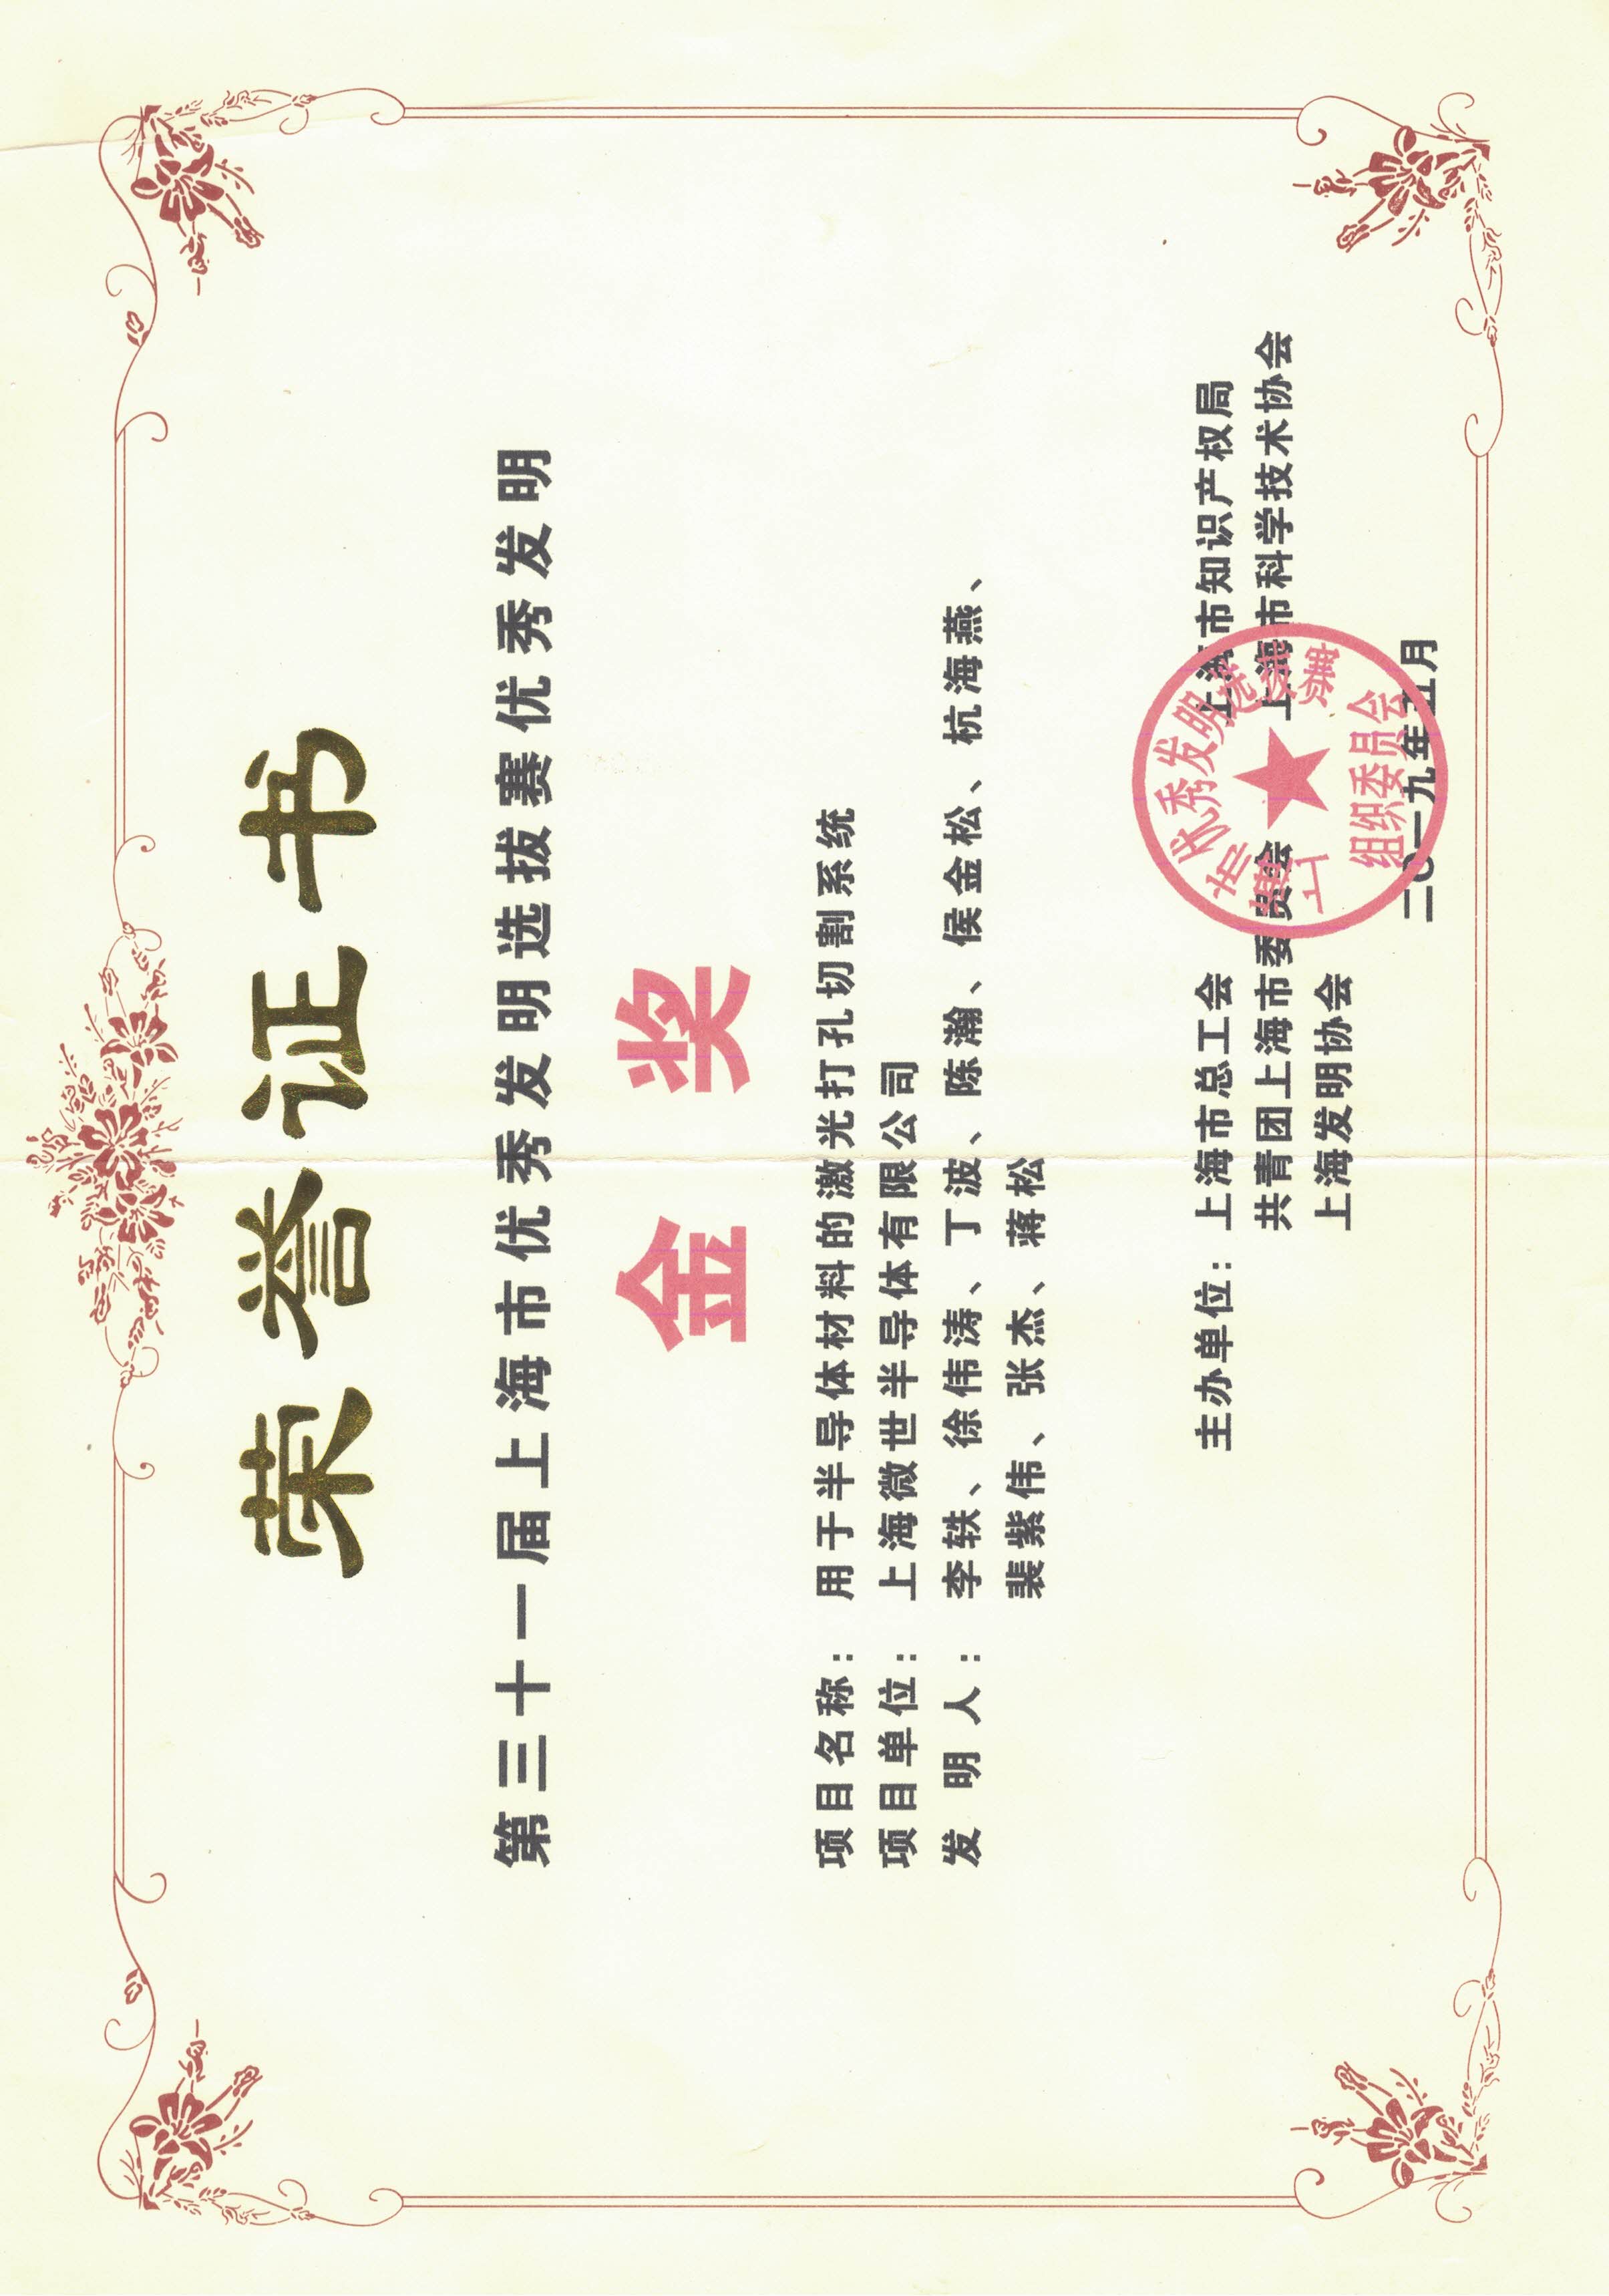 荣誉证书
第三十一届上海市优秀发明选拔赛优秀发明
金 奖
项目名称：用于半导体材料的激光打孔切割系统
项目单位：上海微世半导体有限公司
发 明 人：李轶、徐伟涛、丁波、陈瀚、侯金松、杭海燕、
裴紫伟、张杰、蒋松
主办单位：上海市总工会 上海市知识产权局
共青团上海市委员会 上海市科学技术协会
上海发明协会
二〇一九年五月
上海市优秀发明选拔赛
组织委员会